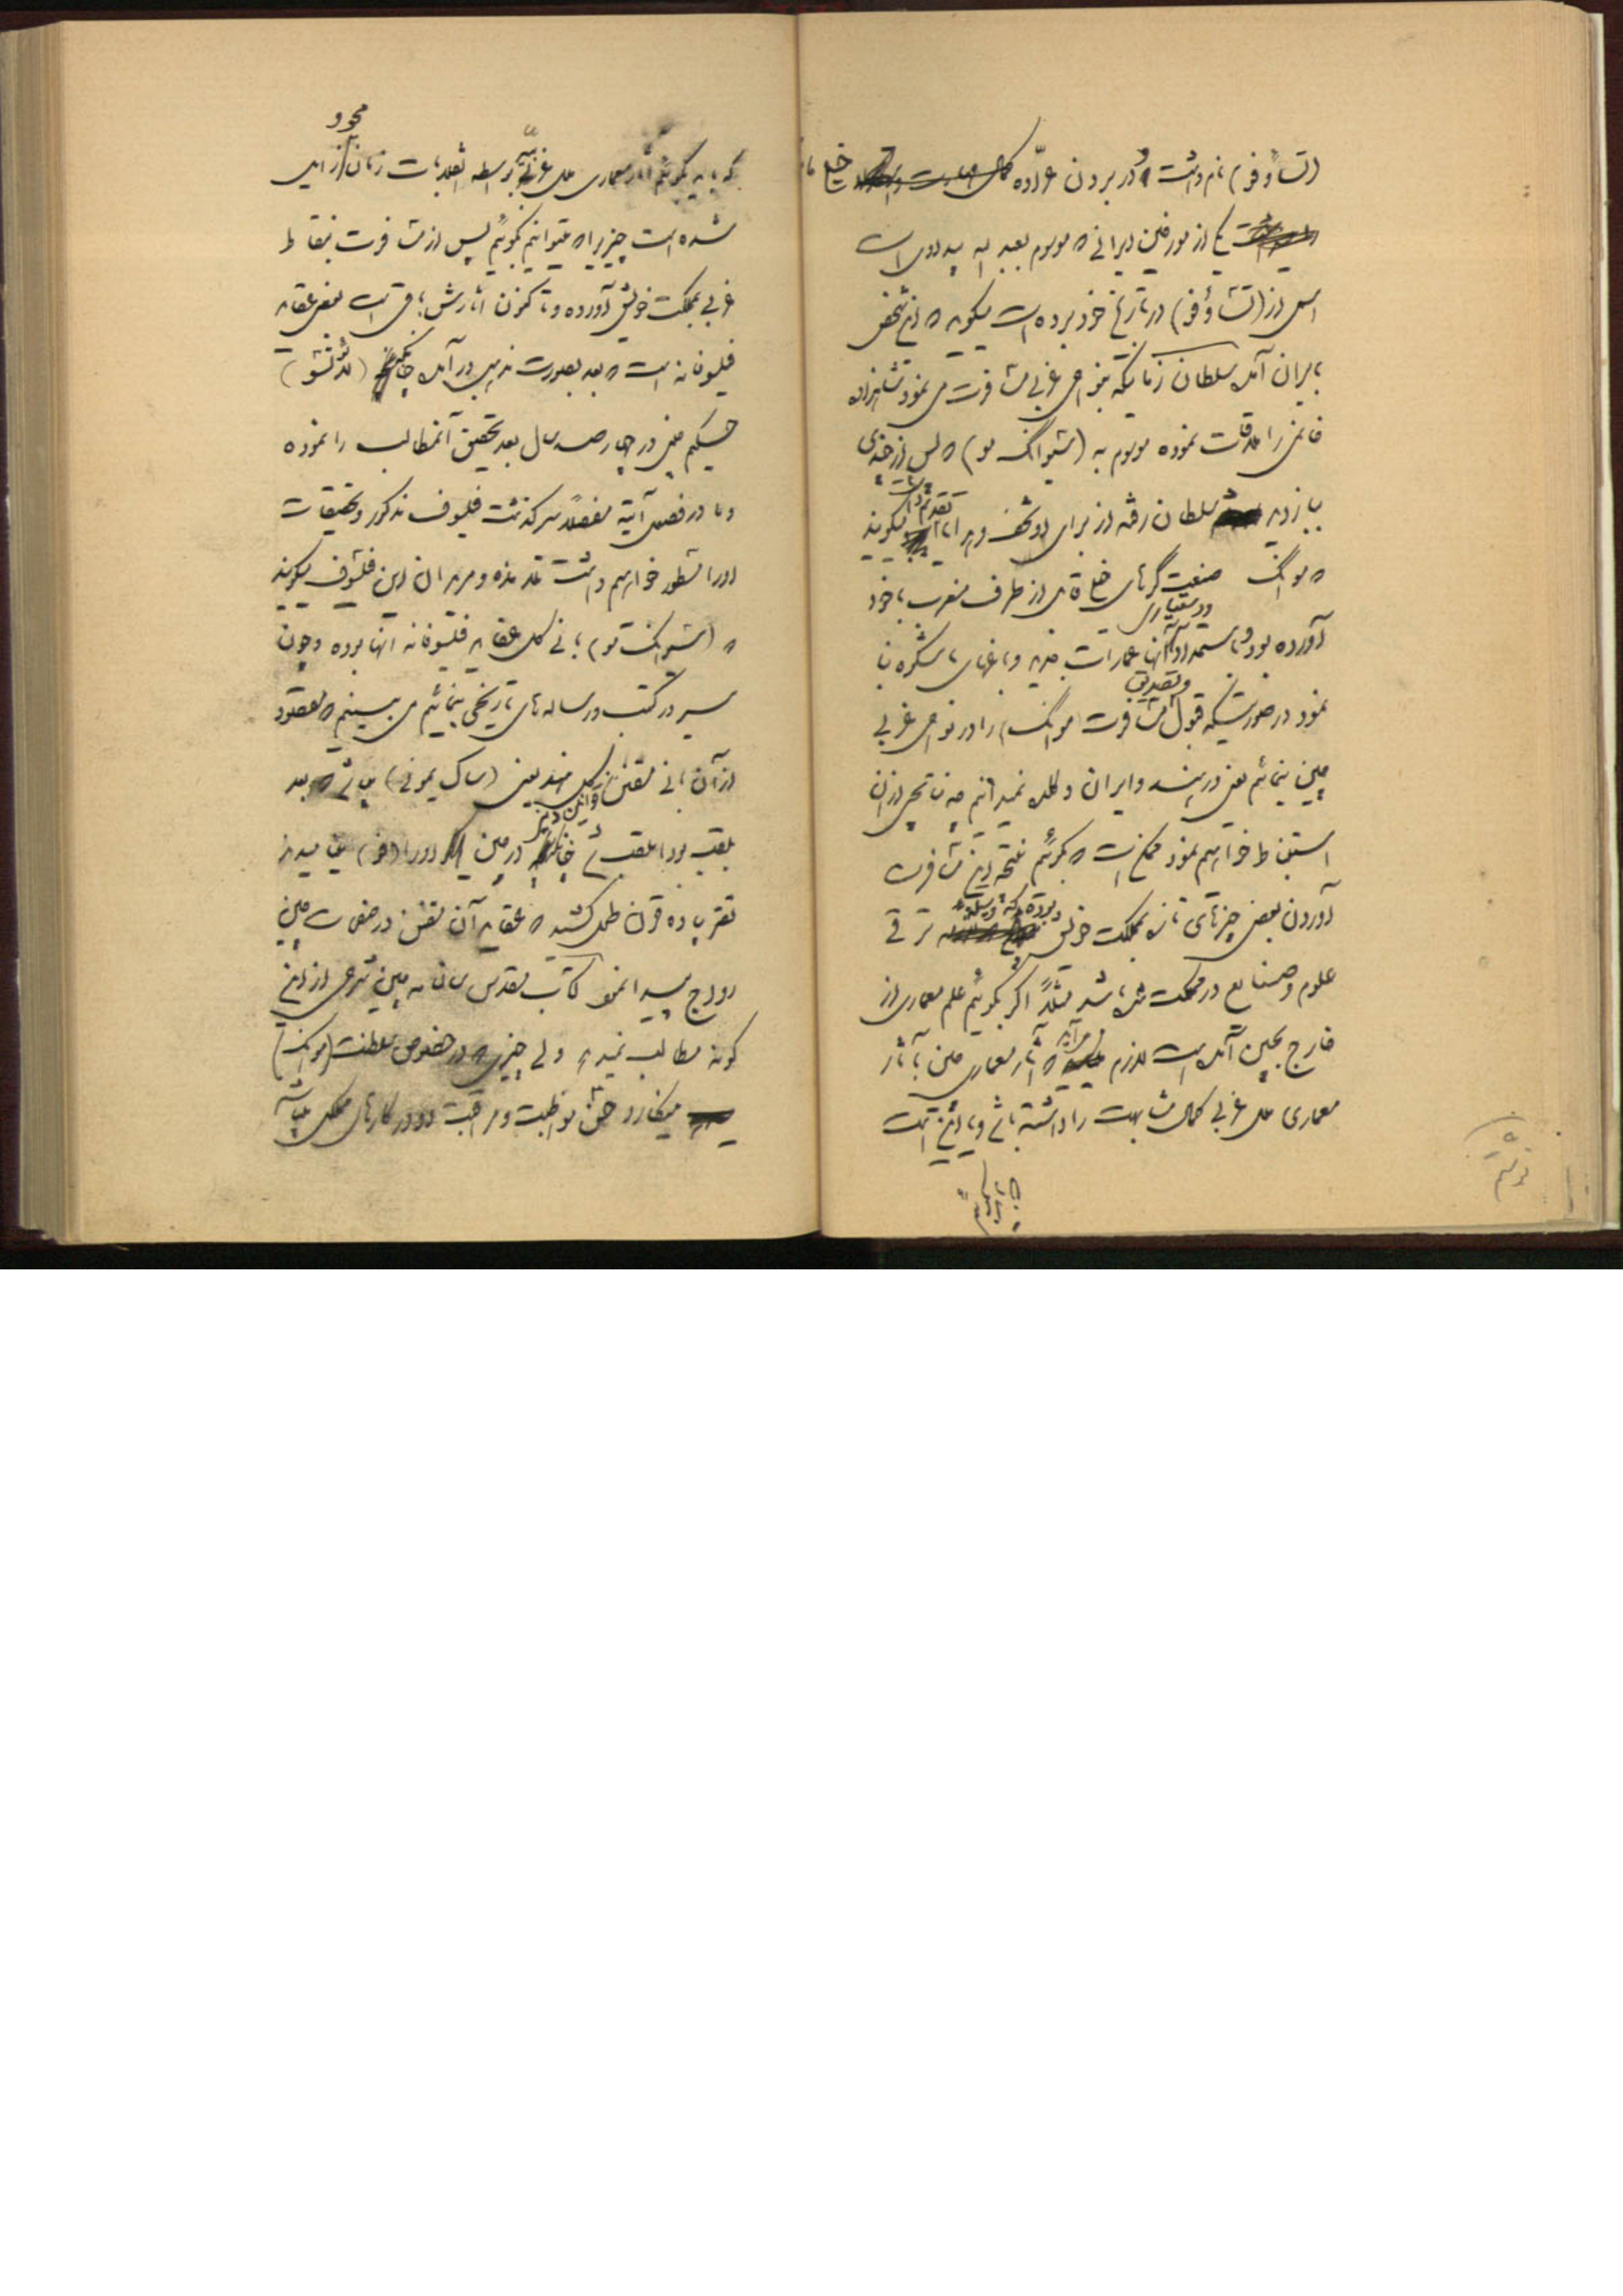 (تساؤفو) نام داشت و در بردن عرّاده کمال
یکی از مورخین ایرانی که موسوم بعبد الله بیداوی است
اسمی از (تساؤفو) در تاریخ خود برده است میگوید که این شخص
بایران آمد سلطان زمانیکه بنواحی غربی مسافرت می نمود شاهزاده
خانمی را ملاقات نموده موسوم به (سیوانگ مو) که پس از چندی
ببازدید سلطان رفته از برای او تحف و هدایا تقدیم داشت میگویند
که موانگ صنعت گرهای خلاق از طرف مغرب با خود
آورده بود و باستمداد و دستیاری آنها عمارات جدید و باغهای با شکوه بنا
نمود در صورتیکه قبول و تصدیق مسافرت (موانگ) را در نواحی غربی
چین بنمائیم یعنی در هند و ایران و کلده نمیدانم چه نتایجی از آن
استنباط خواهیم نمود ممکن است که بگوئیم نتیجه این مسافرت
آوردن بعضی چیزهای تازه بمملکت خویش بوده که وسیله ترقی
علوم و صنایع در مملکت شده باشد مثلاً اگر بگوئیم علم معماری از
خارج بچین آمده است لازم می آید که آثار معماری چین با آثار
معماری ملل غربی کمال مشابهت را داشته باشد و یا این است
که باید بگوئیم آثار معماری ملل غربیّه بواسطه انقلابات زمان محو و زایل
شده است چیزی را که میتوانیم بگوئیم پس از مسافرت بنقاط
غربی بمملکت خویش آورده و تا کنون آثارش باقی است بعضی عقاید
فیلسوفانه است که بعد بصورت مذهبی در آمد چنانکه (لائوتشو)
حکیم چینی در چهار صد سال بعد تحقیق آنمطالب را نموده
و ما در فصل آتیه مفصلاً سرگذشت فیلسوف مذکور و تحقیقات
او را منظور خواهیم داشت تلامذه و مریدان این فیلسوف میگویند
که (سیوانگ مو) بانی کل عقاید فیلسوفانه آنها بوده و چون
سیر در کتب و رساله های تاریخی بنمائیم می بینیم که مقصود
از آن بانی مقنن قوانین هند یعنی (ساکیمونی) باشد که بعد
بلقب بودا ملقب شد چنانکه در چین او را (فو) می نامیدند
تقریباً ده قرن طول کشید که عقاید آن مقنن در صفحات چین
رواج پیدا نمود کتاب مقدس سالنامه چین شرحی از این
گونه مطالب نمیدهد ولی چیزی که در خصوص سلطنت (موانگ)
مینگارد حسن مواظبت و مراقبت او در کارهای مملکت میباشد